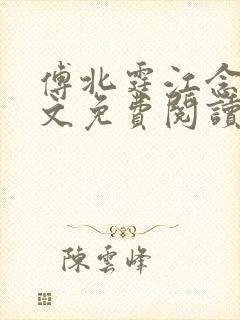 傅北霆江念
文免費閱讀
陳雲峰